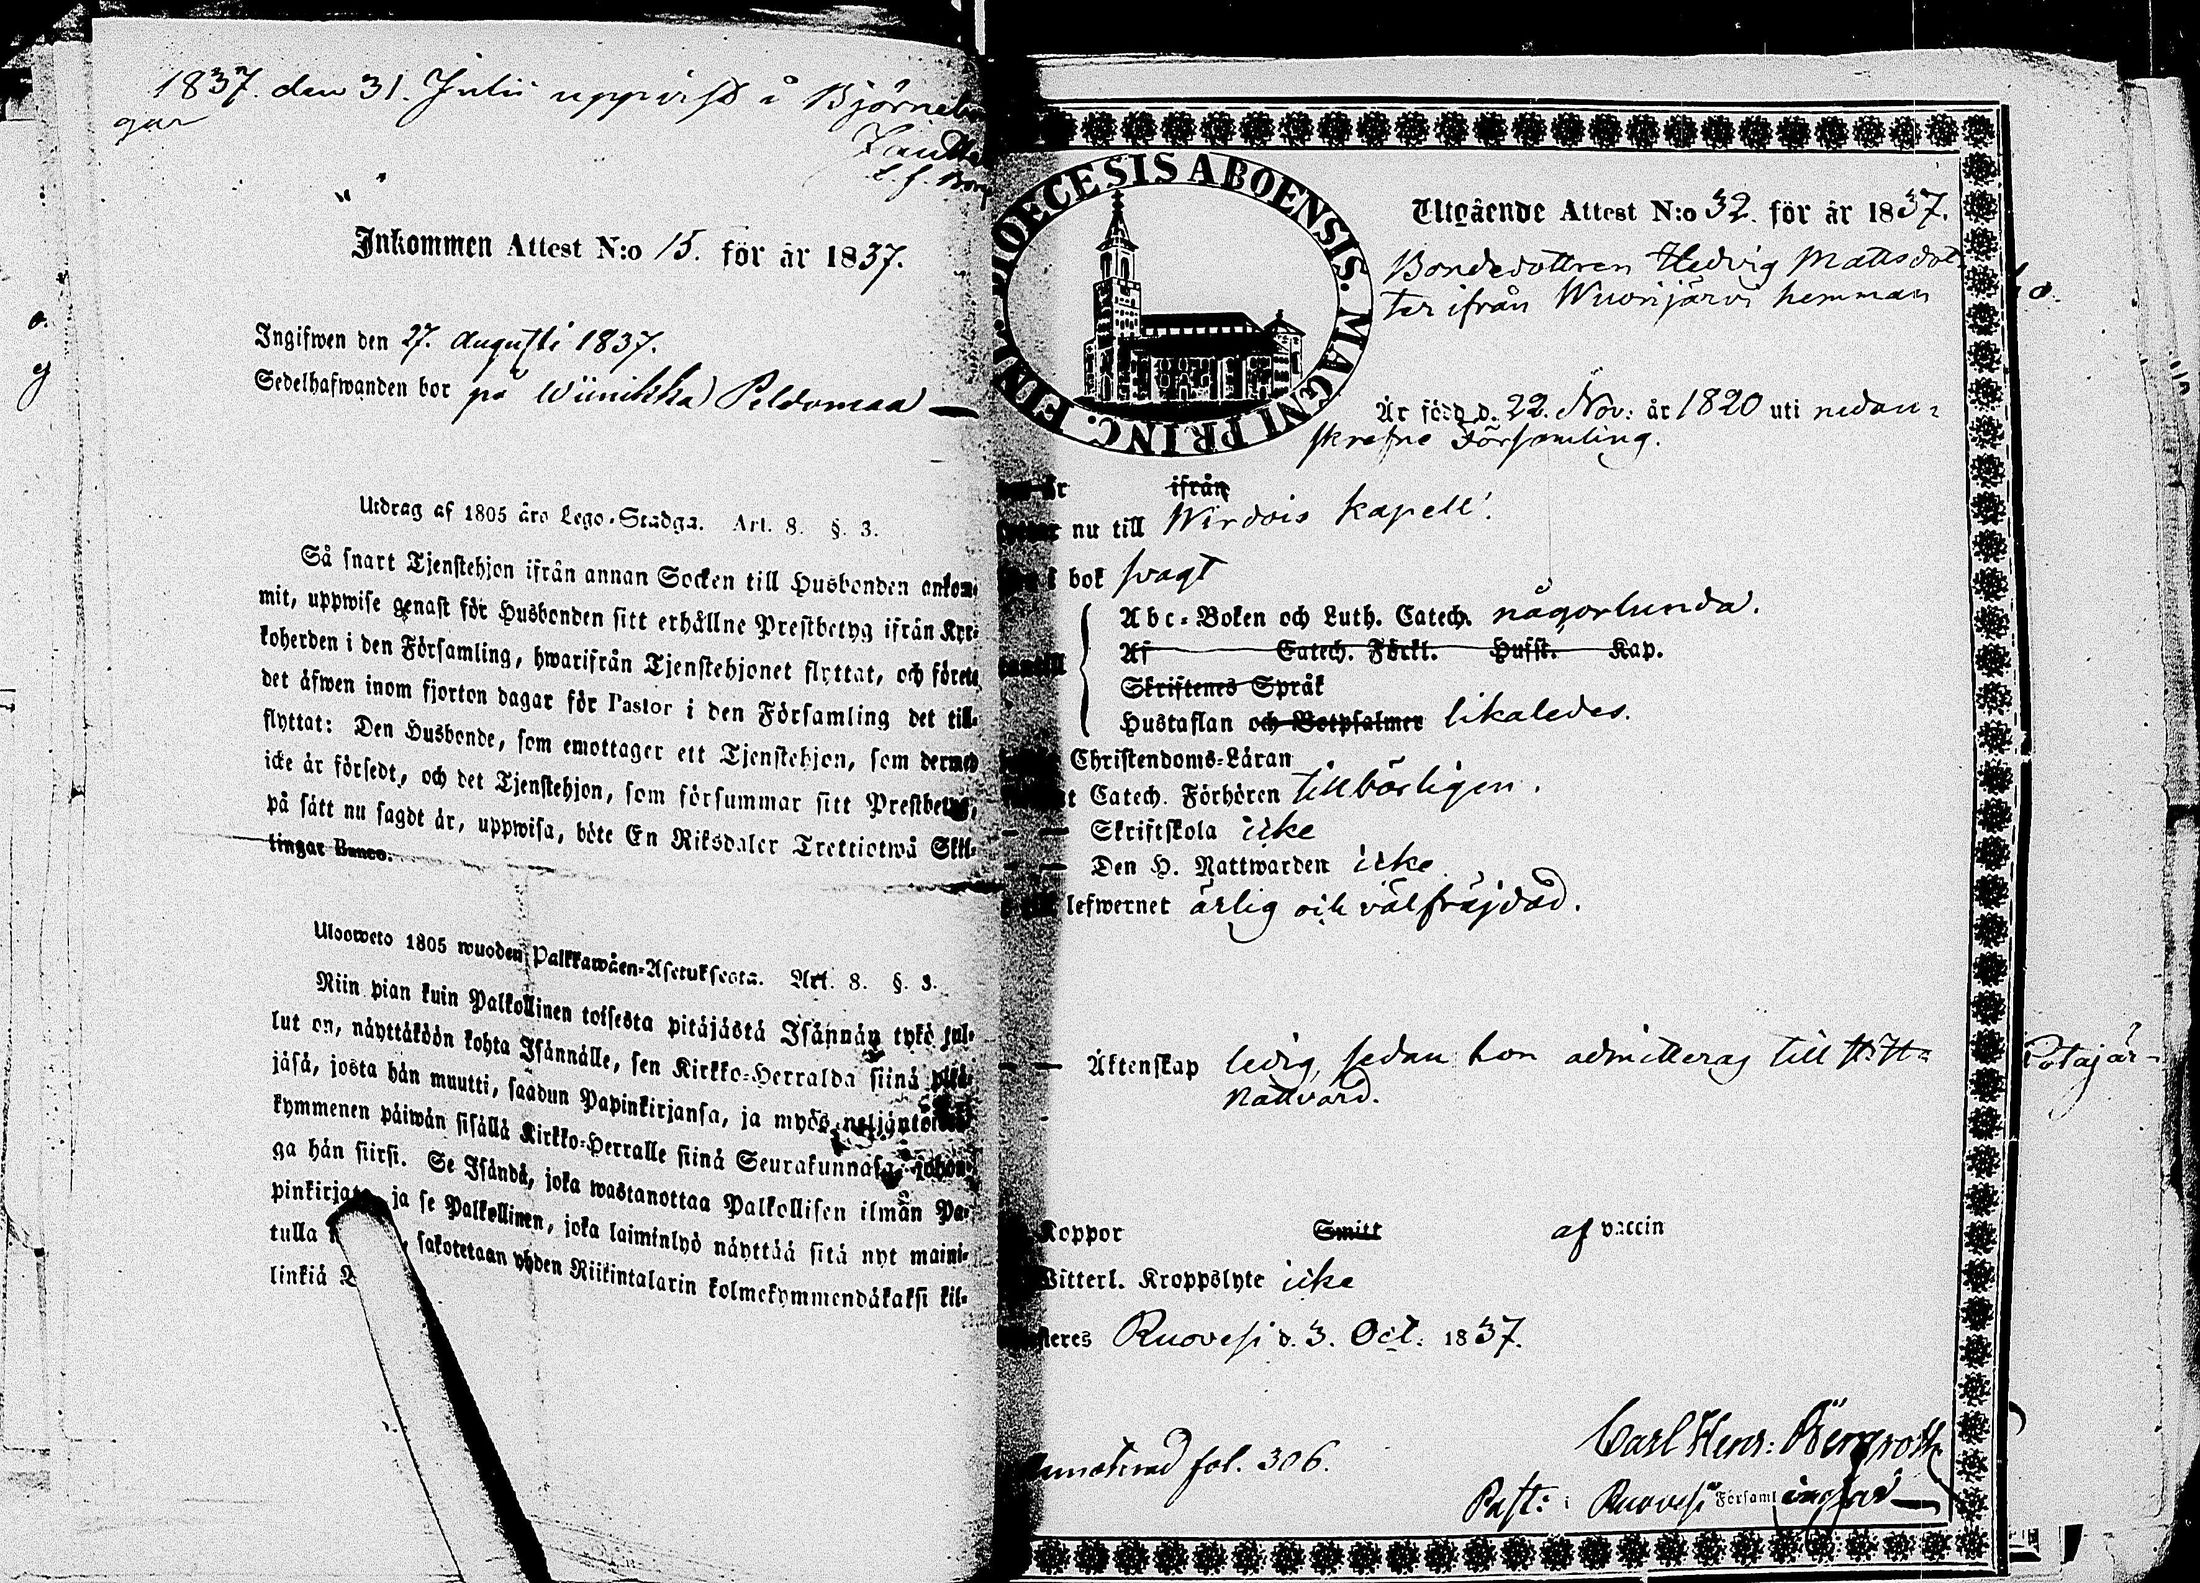 1837. den 31. Julii uppvist i Björneb
Inkommen Attest N:o 15. för år 1837.
Ingifwen den 27. Augusti 1837.
Sedelhafwanden bor på Wiinikka Peldomaa
Utdrag af 1805 års Lego-Stadga. Art. 8. §. 3.
Så snart Tjenstehjon ifrån annan Socken till Husbonden ankom-
mit, uppwise genast för Husbonden sitt erhållne Prestbetyg ifrån Kyr-
koherden i den Församling, hwarifrån Tjenstehjonet flyttat, och förete
det äfwen inom fjorton dagar för Pastor i den Församling det till-
flyttat: Den Husbonde, som emottager ett Tjenstehjon, som dermed
icke är försedt, och det Tjenstehjon, som försummar sitt Prestbetyg,
på sätt nu sagdt är, uppwisa, böte En Riksdaler Trettiotwå Skil-
lingar Banco.
Ulosweto 1805 wuoden Palkkawäen-Asetuksesta. Art. 8. §. 3.
Niin pian kuin Palkollinen toisesta pitäjästä Isännän tykö tul-
lut on, näyttäköön kohta Isännälle, sen Kirkko-Herralda siinä pitä-
jäsä, josta hän muutti, saadun Papinkirjansa, ja myös neljäntoista-
kymmenen päiwän sisällä Kirkko-Herralle siinä Seurakunnasa, johon-
ga hän siirsi. Se Isändä, joka wastanottaa Palkollisen ilman Pa-
pinkirjata, ja se Palkollinen, joka laiminlyö näyttää sitä nyt maini-
tulla sakotetaan yhden Riikintalarin kolmekymmendäkaksi kil-
linkiä
DIOECESIS ABOENSIS. MAGNI PRINC. FINL.
Utgående Attest N:o 32. för år 1837.
Bondedottren Hedvig Mattsdot
ter ifrån Wuorijärvi hemman
Är född d. 22. Nov: år 1820 uti nedan-
skrefne Församling.
ifrån
nu till Wirdois Kapell.
bok svagt
Abc-Boken och Luth. Catech. någorlunda.
Af Catech. Förkl. Hufst. Kap.
Skriftenes Språk
Hustaflan och Botpsalmer likaledes.
Christendoms-Läran
Catech. Förhören tillbörligen.
Skriftskola icke
Den H. Nattwarden icke
lefwernet ärlig och välfräjdad.
Äktenskap ledig, sedan hon admitteras till H. H.
Nattvard.
Potajär-
Koppor Smitt af vaccin
Witterl. Kroppslyte icke
Ruovesi d. 3. Oct. 1837.
Carl Henr: Bergroth
fol. 306.
Past: i Ruovesi Församlingar